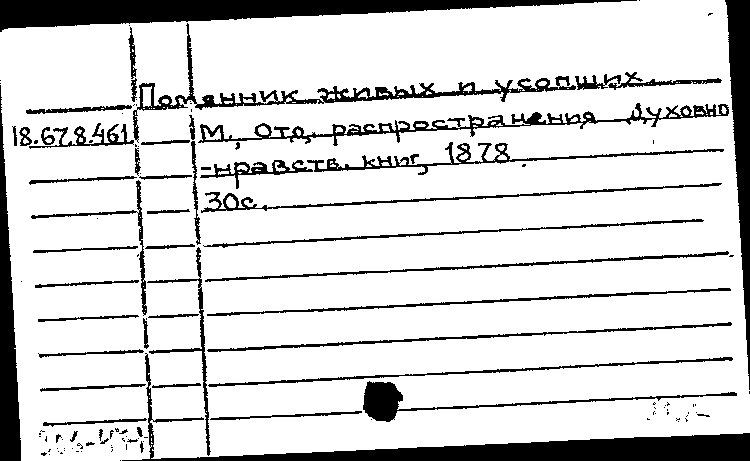 Помянник живых и усопших.
18.67.8.461 М., Отд. распространения духовно
-нравств. книг, 1878.
30с.